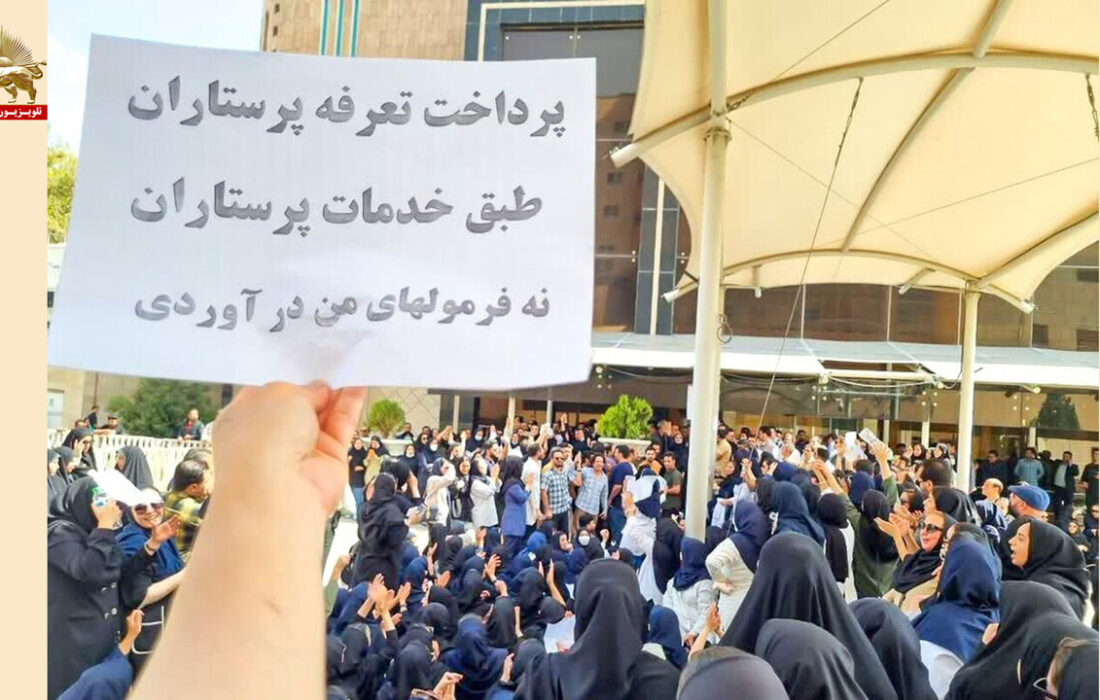 پرداخت تعرفه پرستاران
طبق خدمات پرستاران
نه فرمولهای من در آوردی
تلویزیون